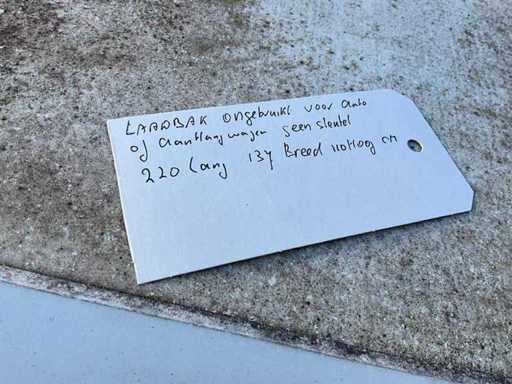 LAADBAK ongebruikt voor auto
of aanhangwagen geen sleutel
220 Lang 134 Breed 110 Hoog cm